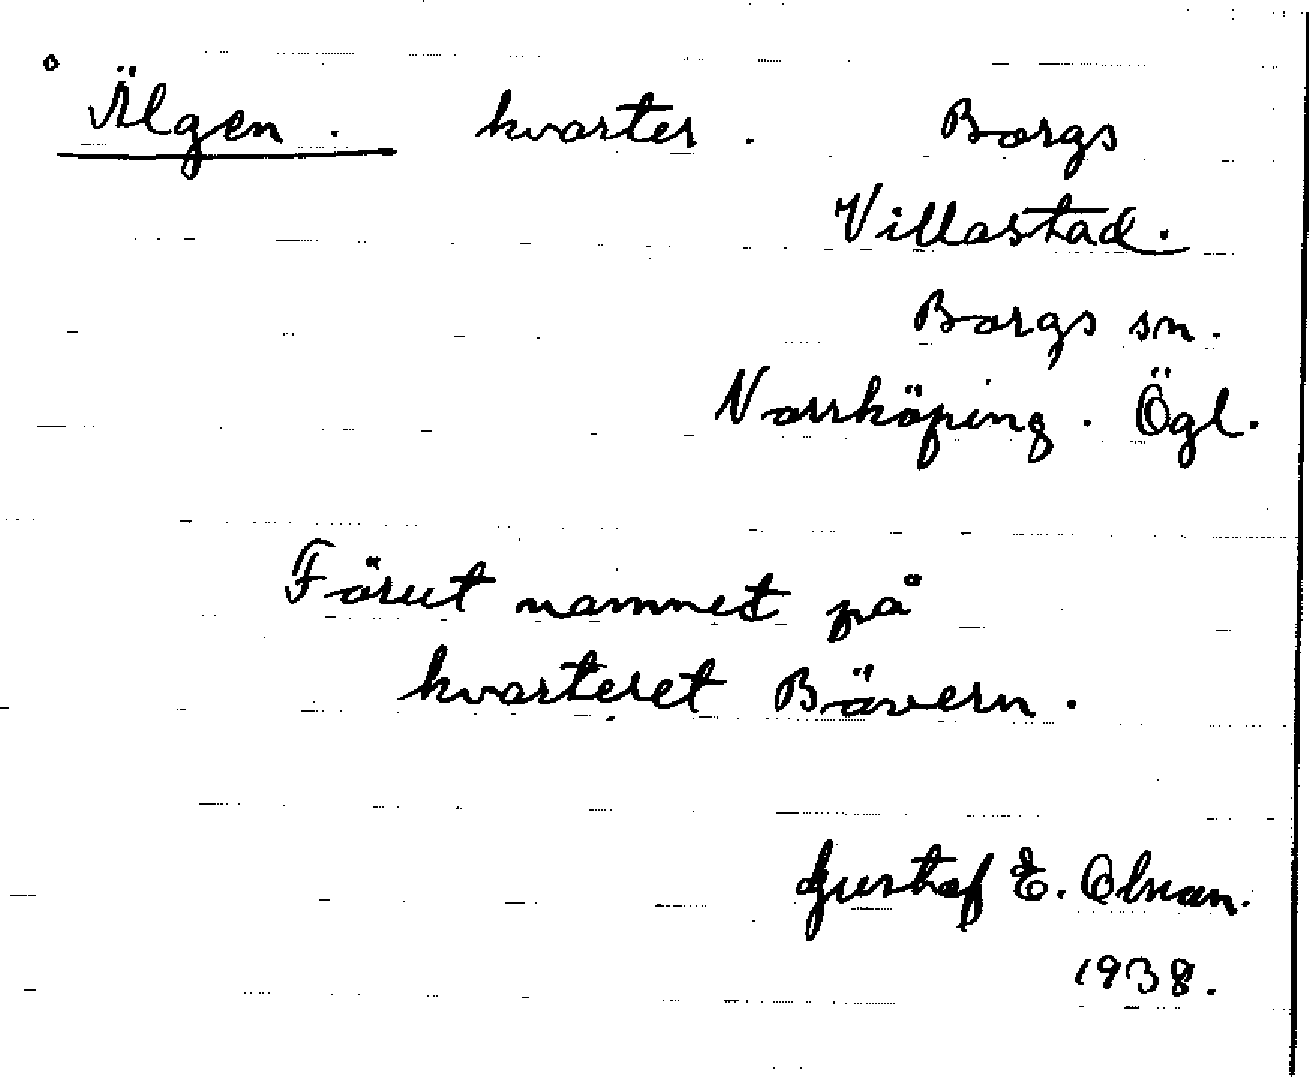 ° Älgen. kvarter. Borgs
Villastad.
Borgs sn.
Norrköping. Ögl.
Förut namnet på
kvarteret Bävern.
Gustaf E. Olson.
1938.